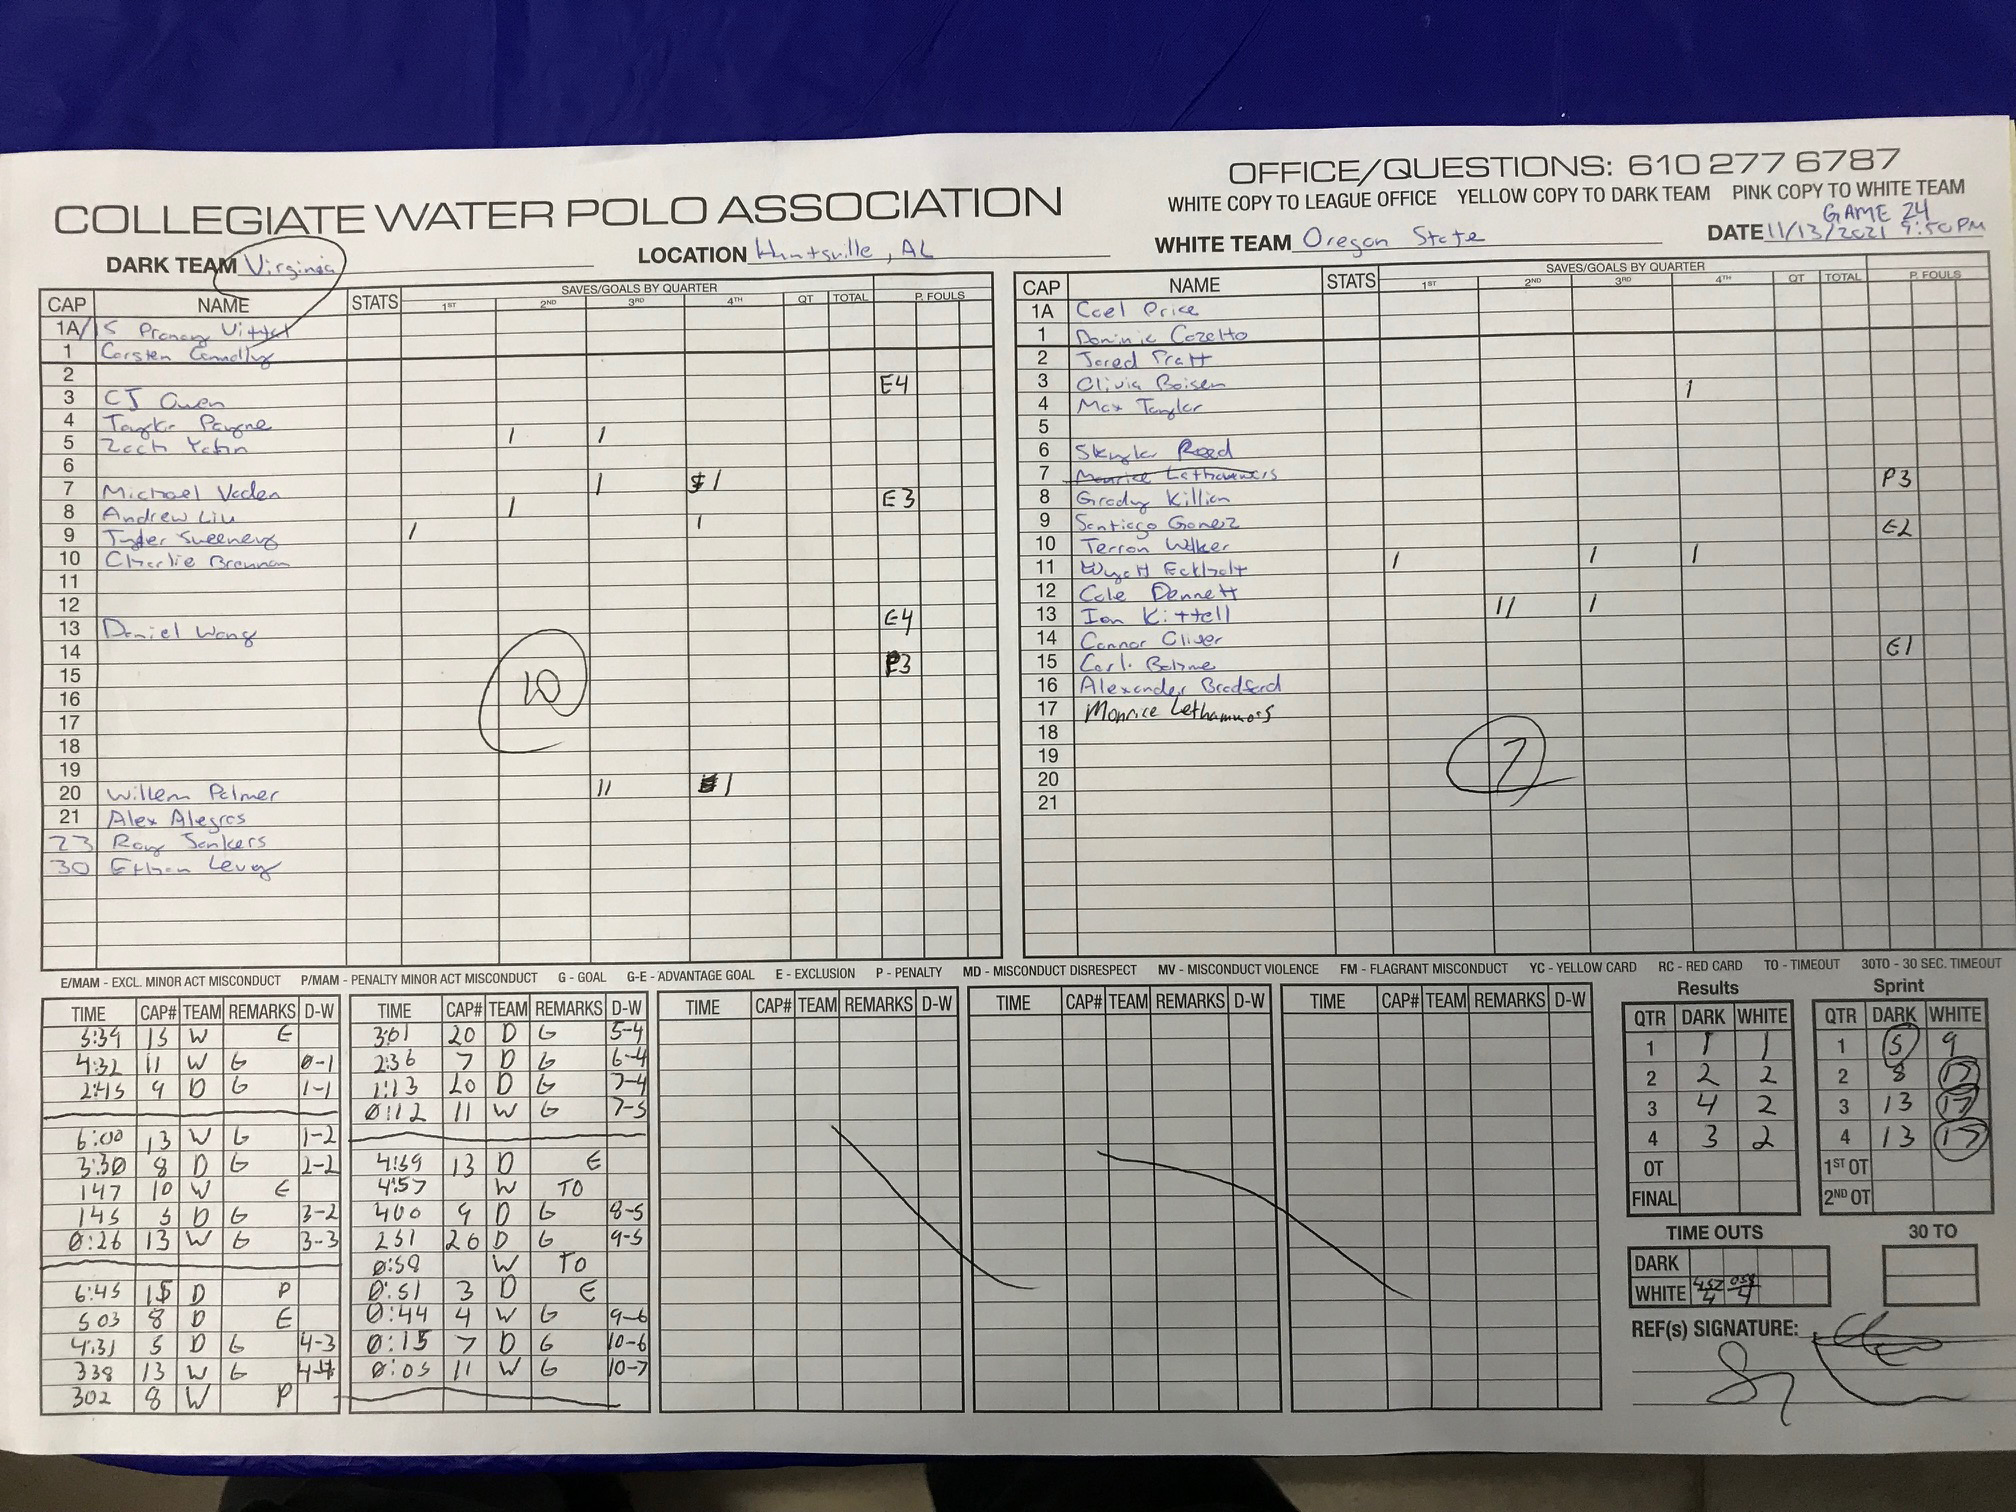 OFFICE/QUESTIONS: 610 277 6787
COLLEGIATE WATER POLO ASSOCIATION
WHITE COPY TO LEAGUE OFFICE YELLOW COPY TO DARK TEAM PINK COPY TO WHITE TEAM
GAME 24
DARK TEAM Virginia LOCATION Huntsville, AL WHITE TEAM Oregon State DATE 11/13/2021 9:50 PM
CAP NAME STATS SAVES/GOALS BY QUARTER 1ST 2ND 3RD 4TH QT TOTAL P. FOULS
1A/5 Pranav Vittal
1 Carsten Connolly
2
3 CJ Owen E4
4 Taylor Payne
5 Zach Yahn 1 1
6
7 Michael Vaden 1 1
8 Andrew Liu 1 E3
9 Tyder Sweeney 1 1
10 Charlie Brennan
11
12
13 Daniel Wang E4
14
15 P3
16
17
18
19
20 Willem Palmer 11 1
21 Alex Alegros
23 Roy Jonkers
30 Ethan Levy
10
CAP NAME STATS SAVES/GOALS BY QUARTER 1ST 2ND 3RD 4TH QT TOTAL P. FOULS
1A Coel Price
1 Dominic Cozetto
2 Jared Pratt
3 Olivia Boisen
4 Max Taylor 1
5
6 Skyler Reed
7 Maurice Lethammers
8 Grady Killian P3
9 Santiago Gomez
10 Terron Walker E2
11 Wyatt Eckholt 1 1 1
12 Cole Dennett
13 Ian Kittell 11 1
14 Connor Oliver
15 Carl Bohme E1
16 Alexander Bradford
17 Maurice Lethammers
18
19
20
21
7
E/MAM - EXCL. MINOR ACT MISCONDUCT P/MAM - PENALTY MINOR ACT MISCONDUCT G - GOAL G-E - ADVANTAGE GOAL E - EXCLUSION P - PENALTY MD - MISCONDUCT DISRESPECT MV - MISCONDUCT VIOLENCE FM - FLAGRANT MISCONDUCT YC - YELLOW CARD RC - RED CARD TO - TIMEOUT 30TO - 30 SEC. TIMEOUT
TIME CAP# TEAM REMARKS D-W
5:39 15 W E
4:32 11 W G 0-1
2:45 9 D G 1-1
6:00 13 W G 1-2
3:30 8 D G 2-2
147 10 W E
145 5 D G 3-2
0:26 13 W G 3-3
6:45 15 D P
503 8 D E
4:31 5 D G 4-3
338 13 W G 4-4
302 8 W P
TIME CAP# TEAM REMARKS D-W
3:01 20 D G 5-4
2:36 7 D G 6-4
1:13 20 D G 7-4
0:12 11 W G 7-5
4:59 13 D E
4:57 W TO
400 9 D G 8-5
251 20 D G 9-5
0:58 W TO
0:51 3 D E
0:44 4 W G 9-6
0:15 7 D G 10-6
0:05 11 W G 10-7
TIME CAP# TEAM REMARKS D-W
TIME CAP# TEAM REMARKS D-W
TIME CAP# TEAM REMARKS D-W
Results
QTR DARK WHITE
1 1 1
2 2 2
3 4 2
4 3 2
OT
FINAL
Sprint
QTR DARK WHITE
1 5 9
2 8 17
3 13 17
4 13 17
1ST OT
2ND OT
TIME OUTS
DARK
WHITE 457/4 058/4
30 TO
REF(s) SIGNATURE: